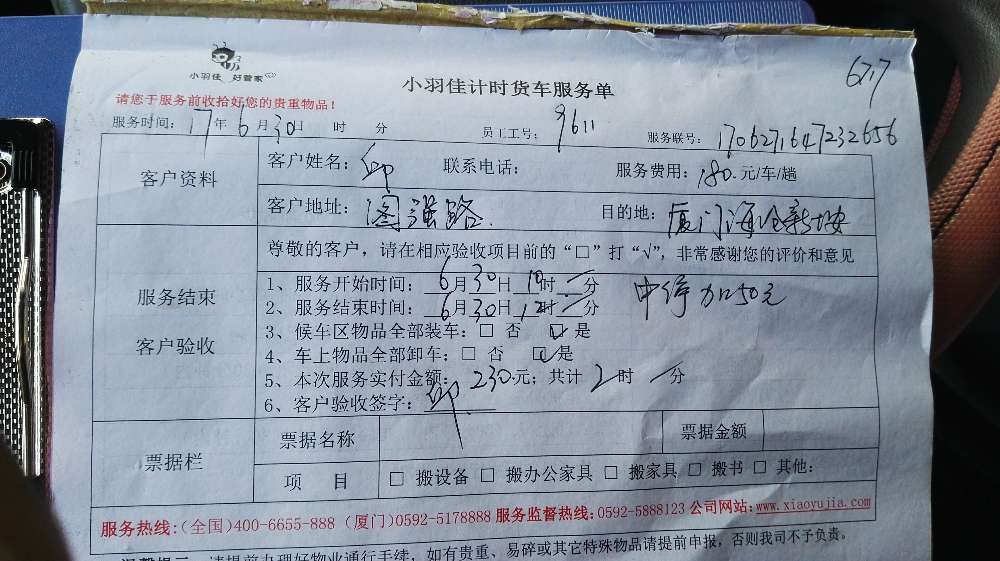 小羽佳 好管家
小羽佳计时货车服务单
677
请您于服务前收拾好您的贵重物品！
服务时间：17年6月30日 时 分 员工工号：9611 服务联号：1706271647232656
客户资料
客户姓名： 联系电话： 服务费用：180.元/车/趟
客户地址：路 目的地：厦门海沧新垵
尊敬的客户，请在相应验收项目前的“□”打“√”，非常感谢您的评价和意见
服务结束
客户验收
1、服务开始时间：6月30日10时一分
2、服务结束时间：6月30日12时一分
中停加50元
3、候车区物品全部装车：□ 否 ☑是
4、车上物品全部卸车：□ 否 ☑是
5、本次服务实付金额：230元；共计2时一分
6、客户验收签字：
票据栏
票据名称 票据金额
项 目 □ 搬设备 □ 搬办公家具 □ 搬家具 □ 搬书 □ 其他：
服务热线：（全国）400-6655-888（厦门）0592-5178888 服务监督热线：0592-5888123 公司网站：www.xiaoyujia.com
请提前办理好物业通行手续，如有贵重、易碎或其它特殊物品请提前申报，否则我司不予负责。